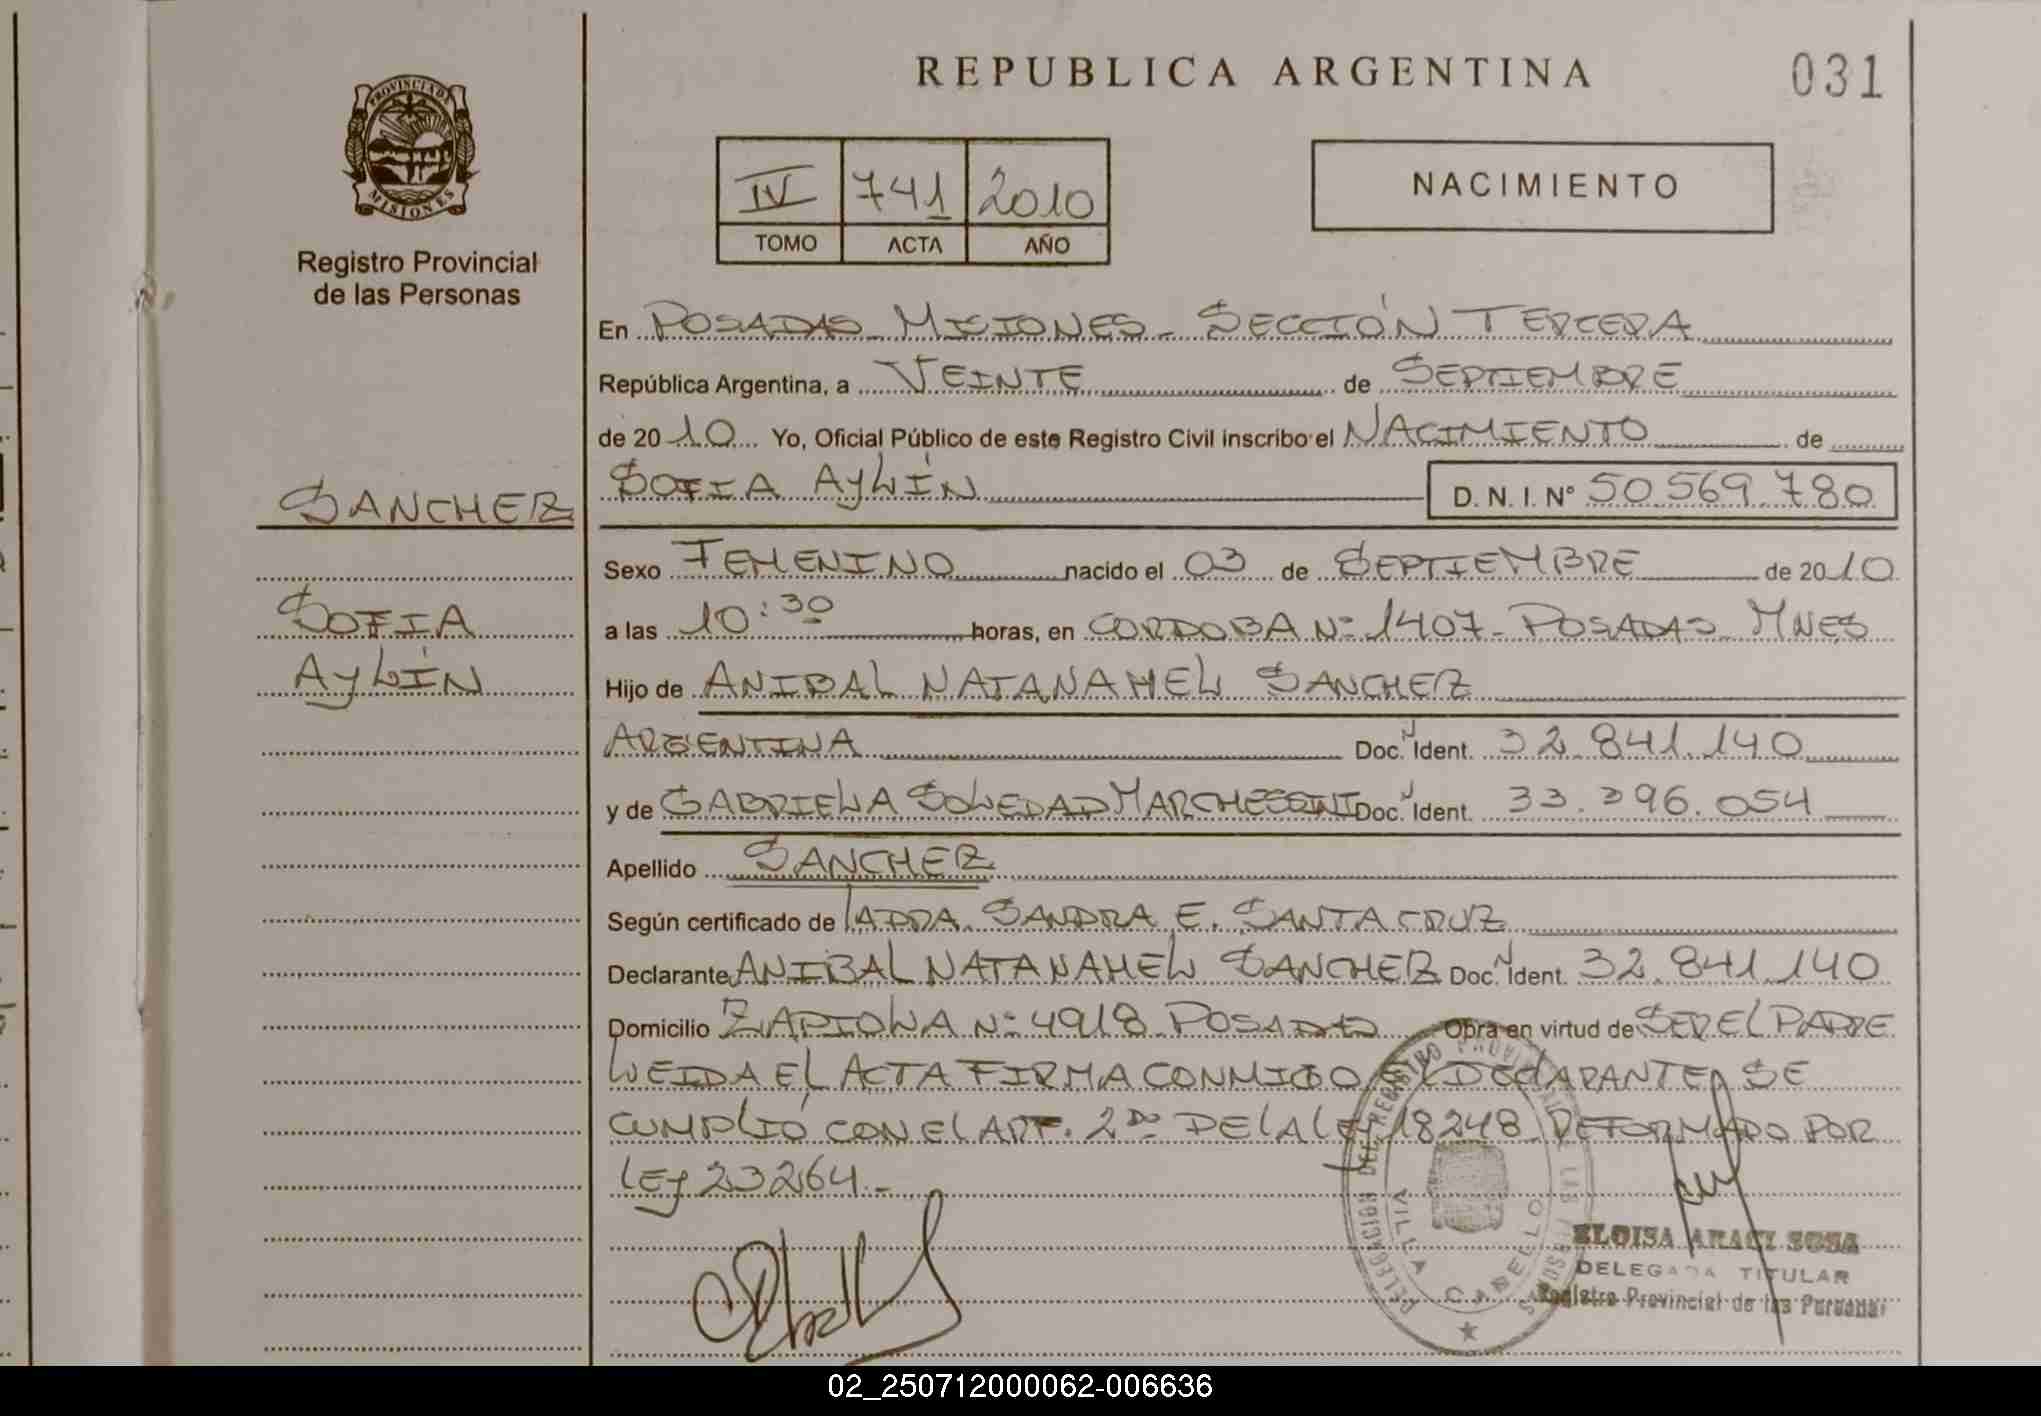 REPUBLICA ARGENTINA
031
PROVINCIA DE MISIONES
Registro Provincial
de las Personas
IV 741 2010
TOMO ACTA AÑO
NACIMIENTO
En POSADAS MISIONES - SECCIÓN TERCERA
República Argentina, a VEINTE de SEPTIEMBRE
de 2010 Yo, Oficial Público de este Registro Civil inscribo el NACIMIENTO de
SOFIA AYLÍN D. N. I. N° 50.569.780
SANCHEZ
SOFIA
AYLÍN
Sexo FEMENINO nacido el 03 de SEPTIEMBRE de 2010
a las 10:30 horas, en CORDOBA N° 1407 - POSADAS MNES
Hijo de ANIBAL NATANAHEL SANCHEZ
ARGENTINA Doc. N Ident. 32.841.140
y de GABRIELA SOLEDAD Doc. N Ident. 33.396.054
Apellido SANCHEZ
Según certificado de SANDRA E. SANTA CRUZ
Declarante ANIBAL NATANAHEL SANCHEZ Doc. N Ident. 32.841.140
Domicilio ZAPIOLA N° 4918 POSADAS Obra en virtud de SER EL PADRE
LEIDA EL ACTA FIRMA CONMIGO EL DECLARANTE, SE
CUMPLIÓ CON EL ART. 2do DE LA LEY 18248 REFORMADO POR
LEY 23264.-
DELEGACION DEL REGISTRO PROVINCIAL DE LAS PERSONAS
VILLA CABELLO
ELOISA ARACI SOSA
DELEGADA TITULAR
Registro Provincial de las Personas
02_250712000062-006636